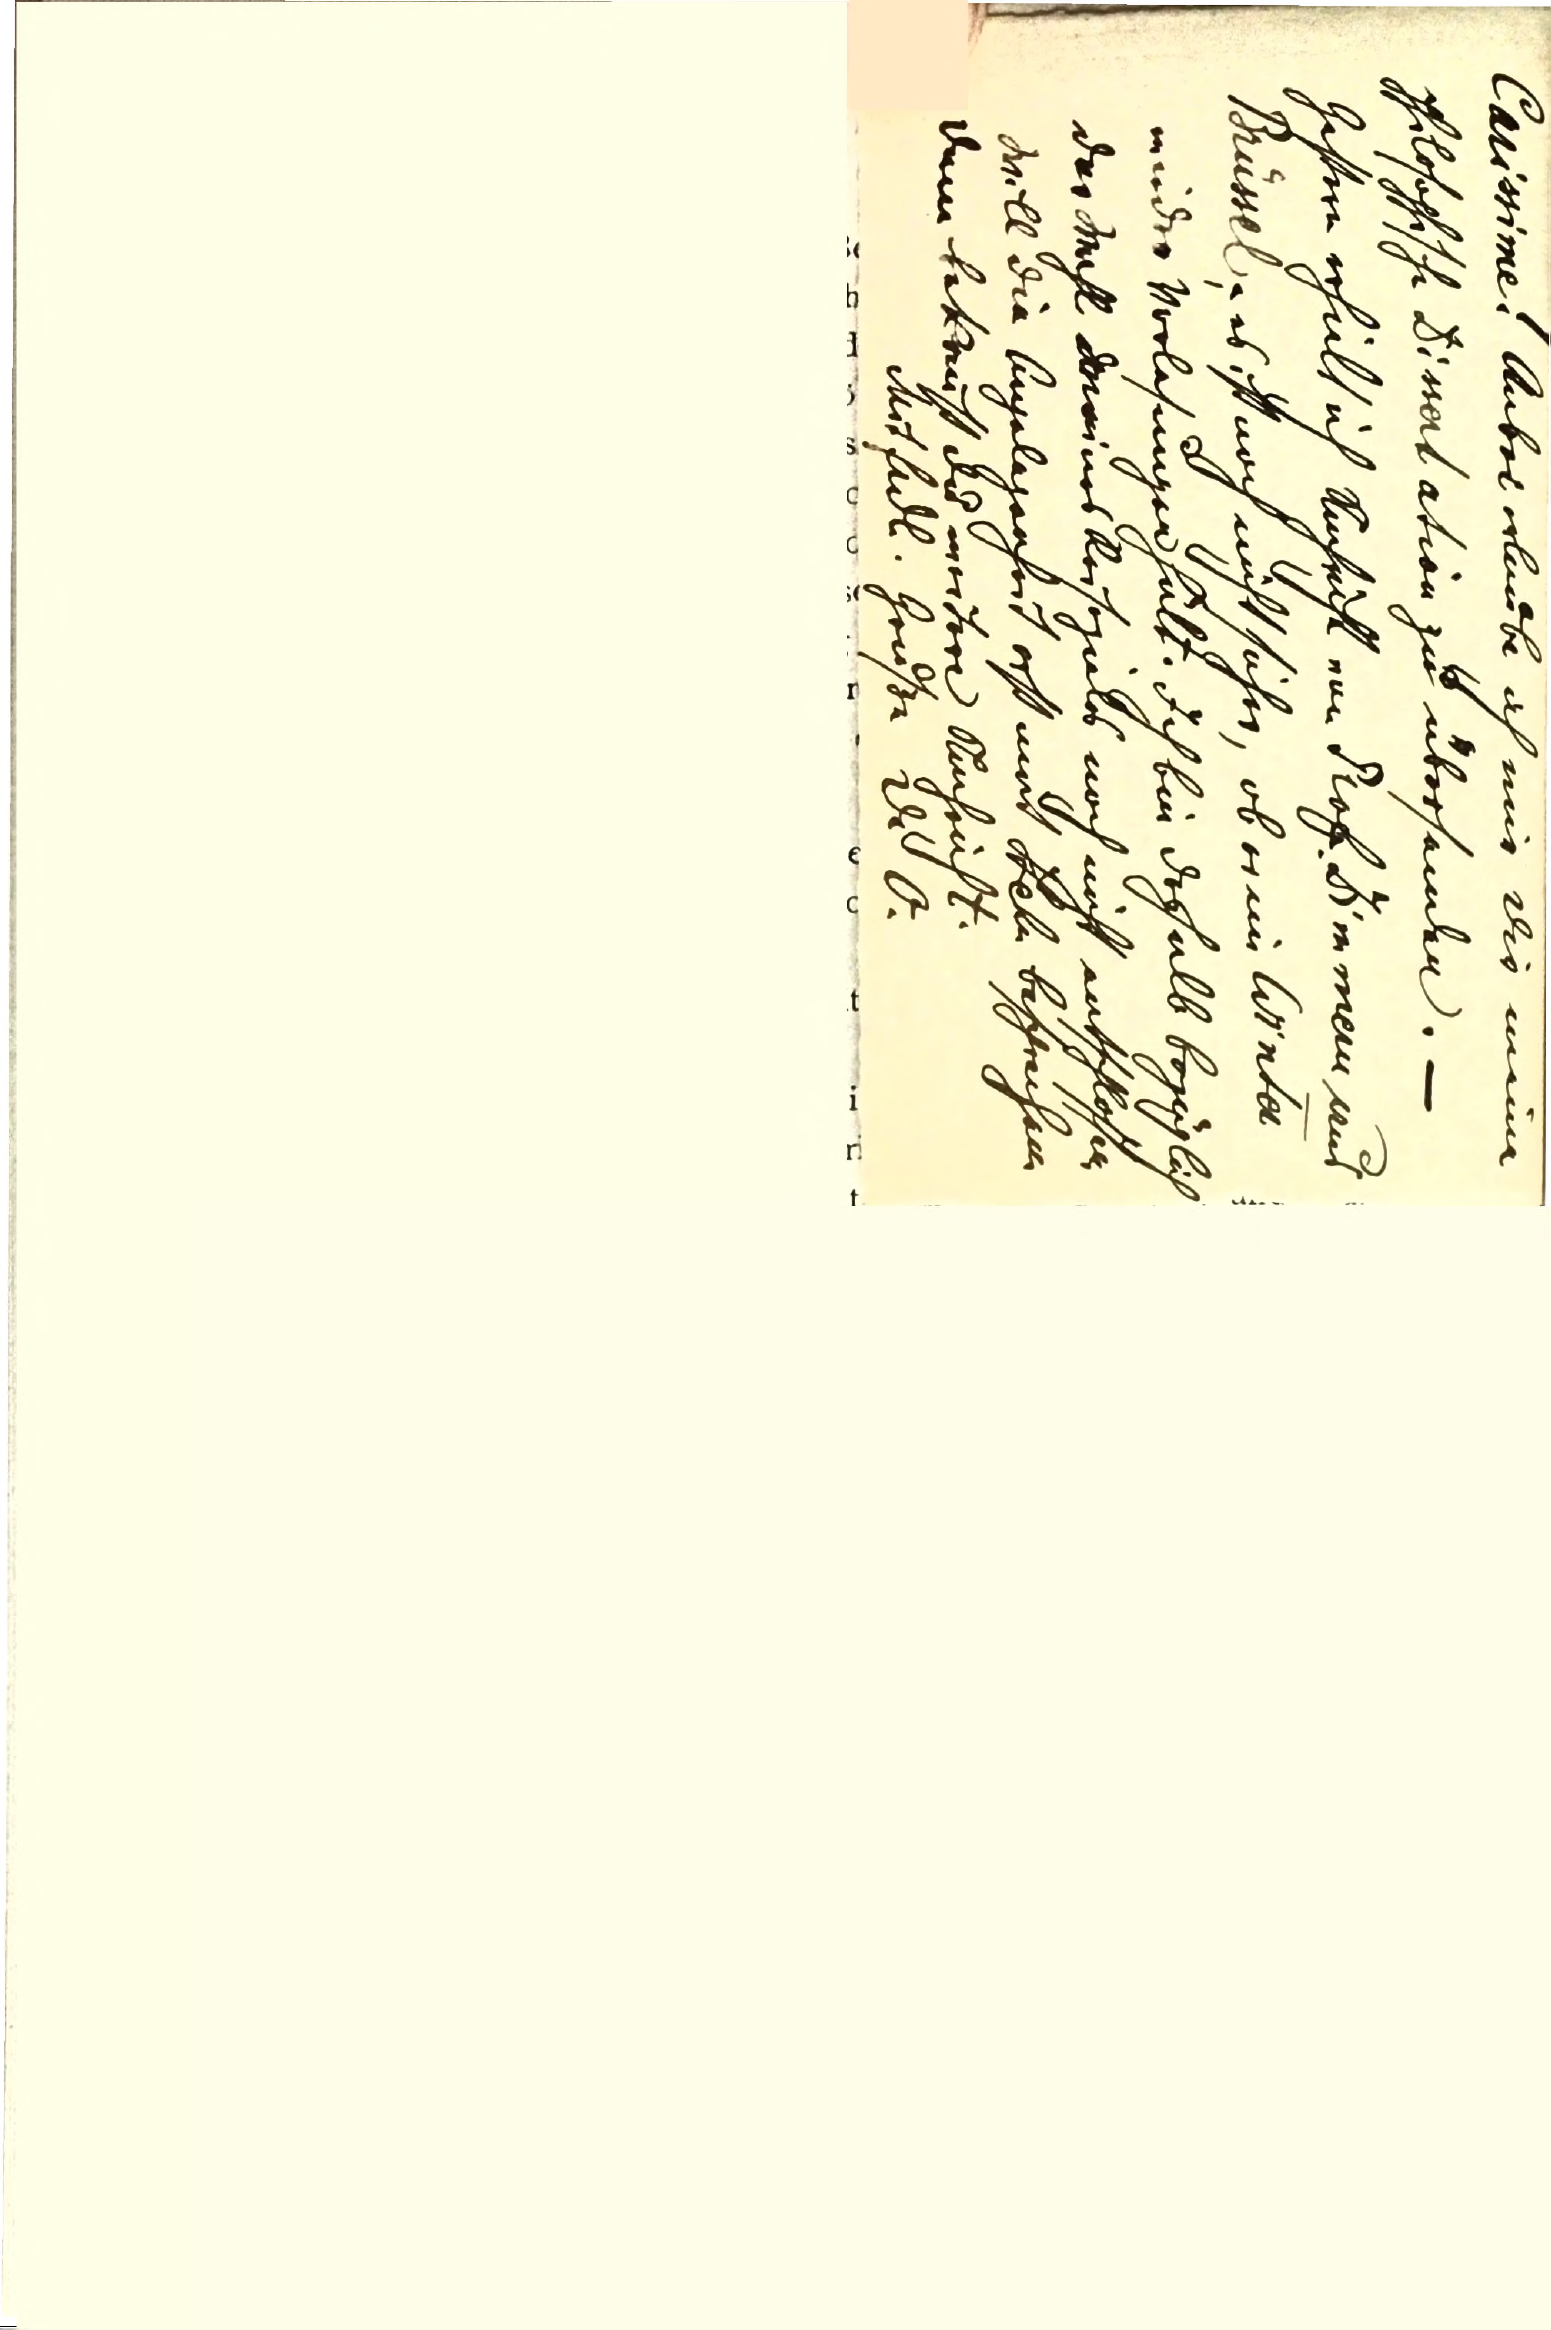 Carissime! Anbei erlaube ich mir Dir meine
philosophische Dissertation zu übersenden. —
Gestern erhielt ich Nachricht von Prof. Dimmen aus
Brüssel, es ist noch nicht sicher, ob er im Winter
wieder Vorlesungen hält. Ich bin deshalb bezüglich
der Wahl meines Reiseziels noch nicht entschlossen
will die Angelegenheit erst mit besprechen
dann bekommst Du weitere Nachricht.
Mit herzl. Grüßen Dd O.